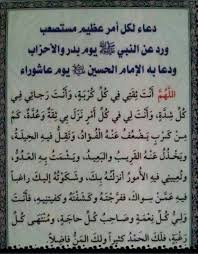 دعاء لكل أمر عظيم مستصعب
ورد عن النبي ﷺ يوم بدر والأحزاب
ودعا به الإمام الحسين يوم عاشوراء
اللَّهُمَّ أَنْتَ ثِقَتِي فِي كُلِّ كُرْبَةٍ، وَأَنْتَ رَجَائِي فِي
كُلِّ شِدَّةٍ، وَأَنْتَ لِي فِي كُلِّ أَمْرٍ نَزَلَ بِي ثِقَةٌ وَعُدَّةٌ، كَمْ
مِنْ كَرْبٍ يَضْعُفُ عَنْهُ الْفُؤَادُ، وَتَقِلُّ فِيهِ الْحِيلَةُ،
وَيَخْذُلُ عَنْهُ الْقَرِيبُ وَالْبَعِيدُ، وَيَشْمَتُ بِهِ الْعَدُوُّ،
وَتُعْيِينِي فِيهِ الْأُمُورُ أَنْزَلْتُهُ بِكَ، وَشَكَوْتُهُ إِلَيْكَ رَاغِباً
فِيهِ عَمَّنْ سِوَاكَ، فَفَرَّجْتَهُ وَكَشَفْتَهُ وَكَفَيْتَنِيهِ، فَأَنْتَ
وَلِيُّ كُلِّ نِعْمَةٍ وَصَاحِبُ كُلِّ حَاجَةٍ، وَمُنْتَهَى كُلِّ
رَغْبَةٍ، فَلَكَ الْحَمْدُ كَثِيراً وَلَكَ الْمَنُّ فَاضِلاً